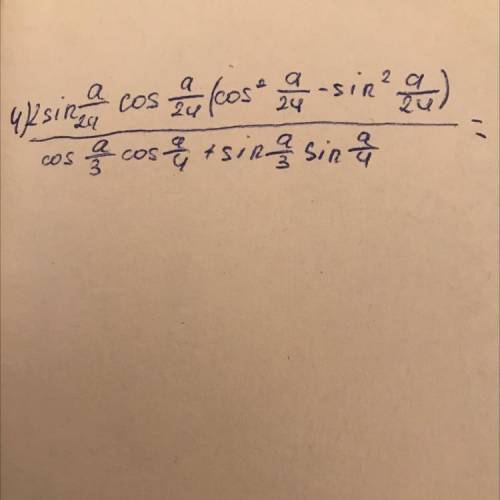 4) \frac{2 sin \frac{a}{24} cos \frac{a}{24} (cos² \frac{a}{24} - sin² \frac{a}{24})}{cos \frac{a}{3} cos \frac{a}{4} + sin \frac{a}{3} sin \frac{a}{4}} =